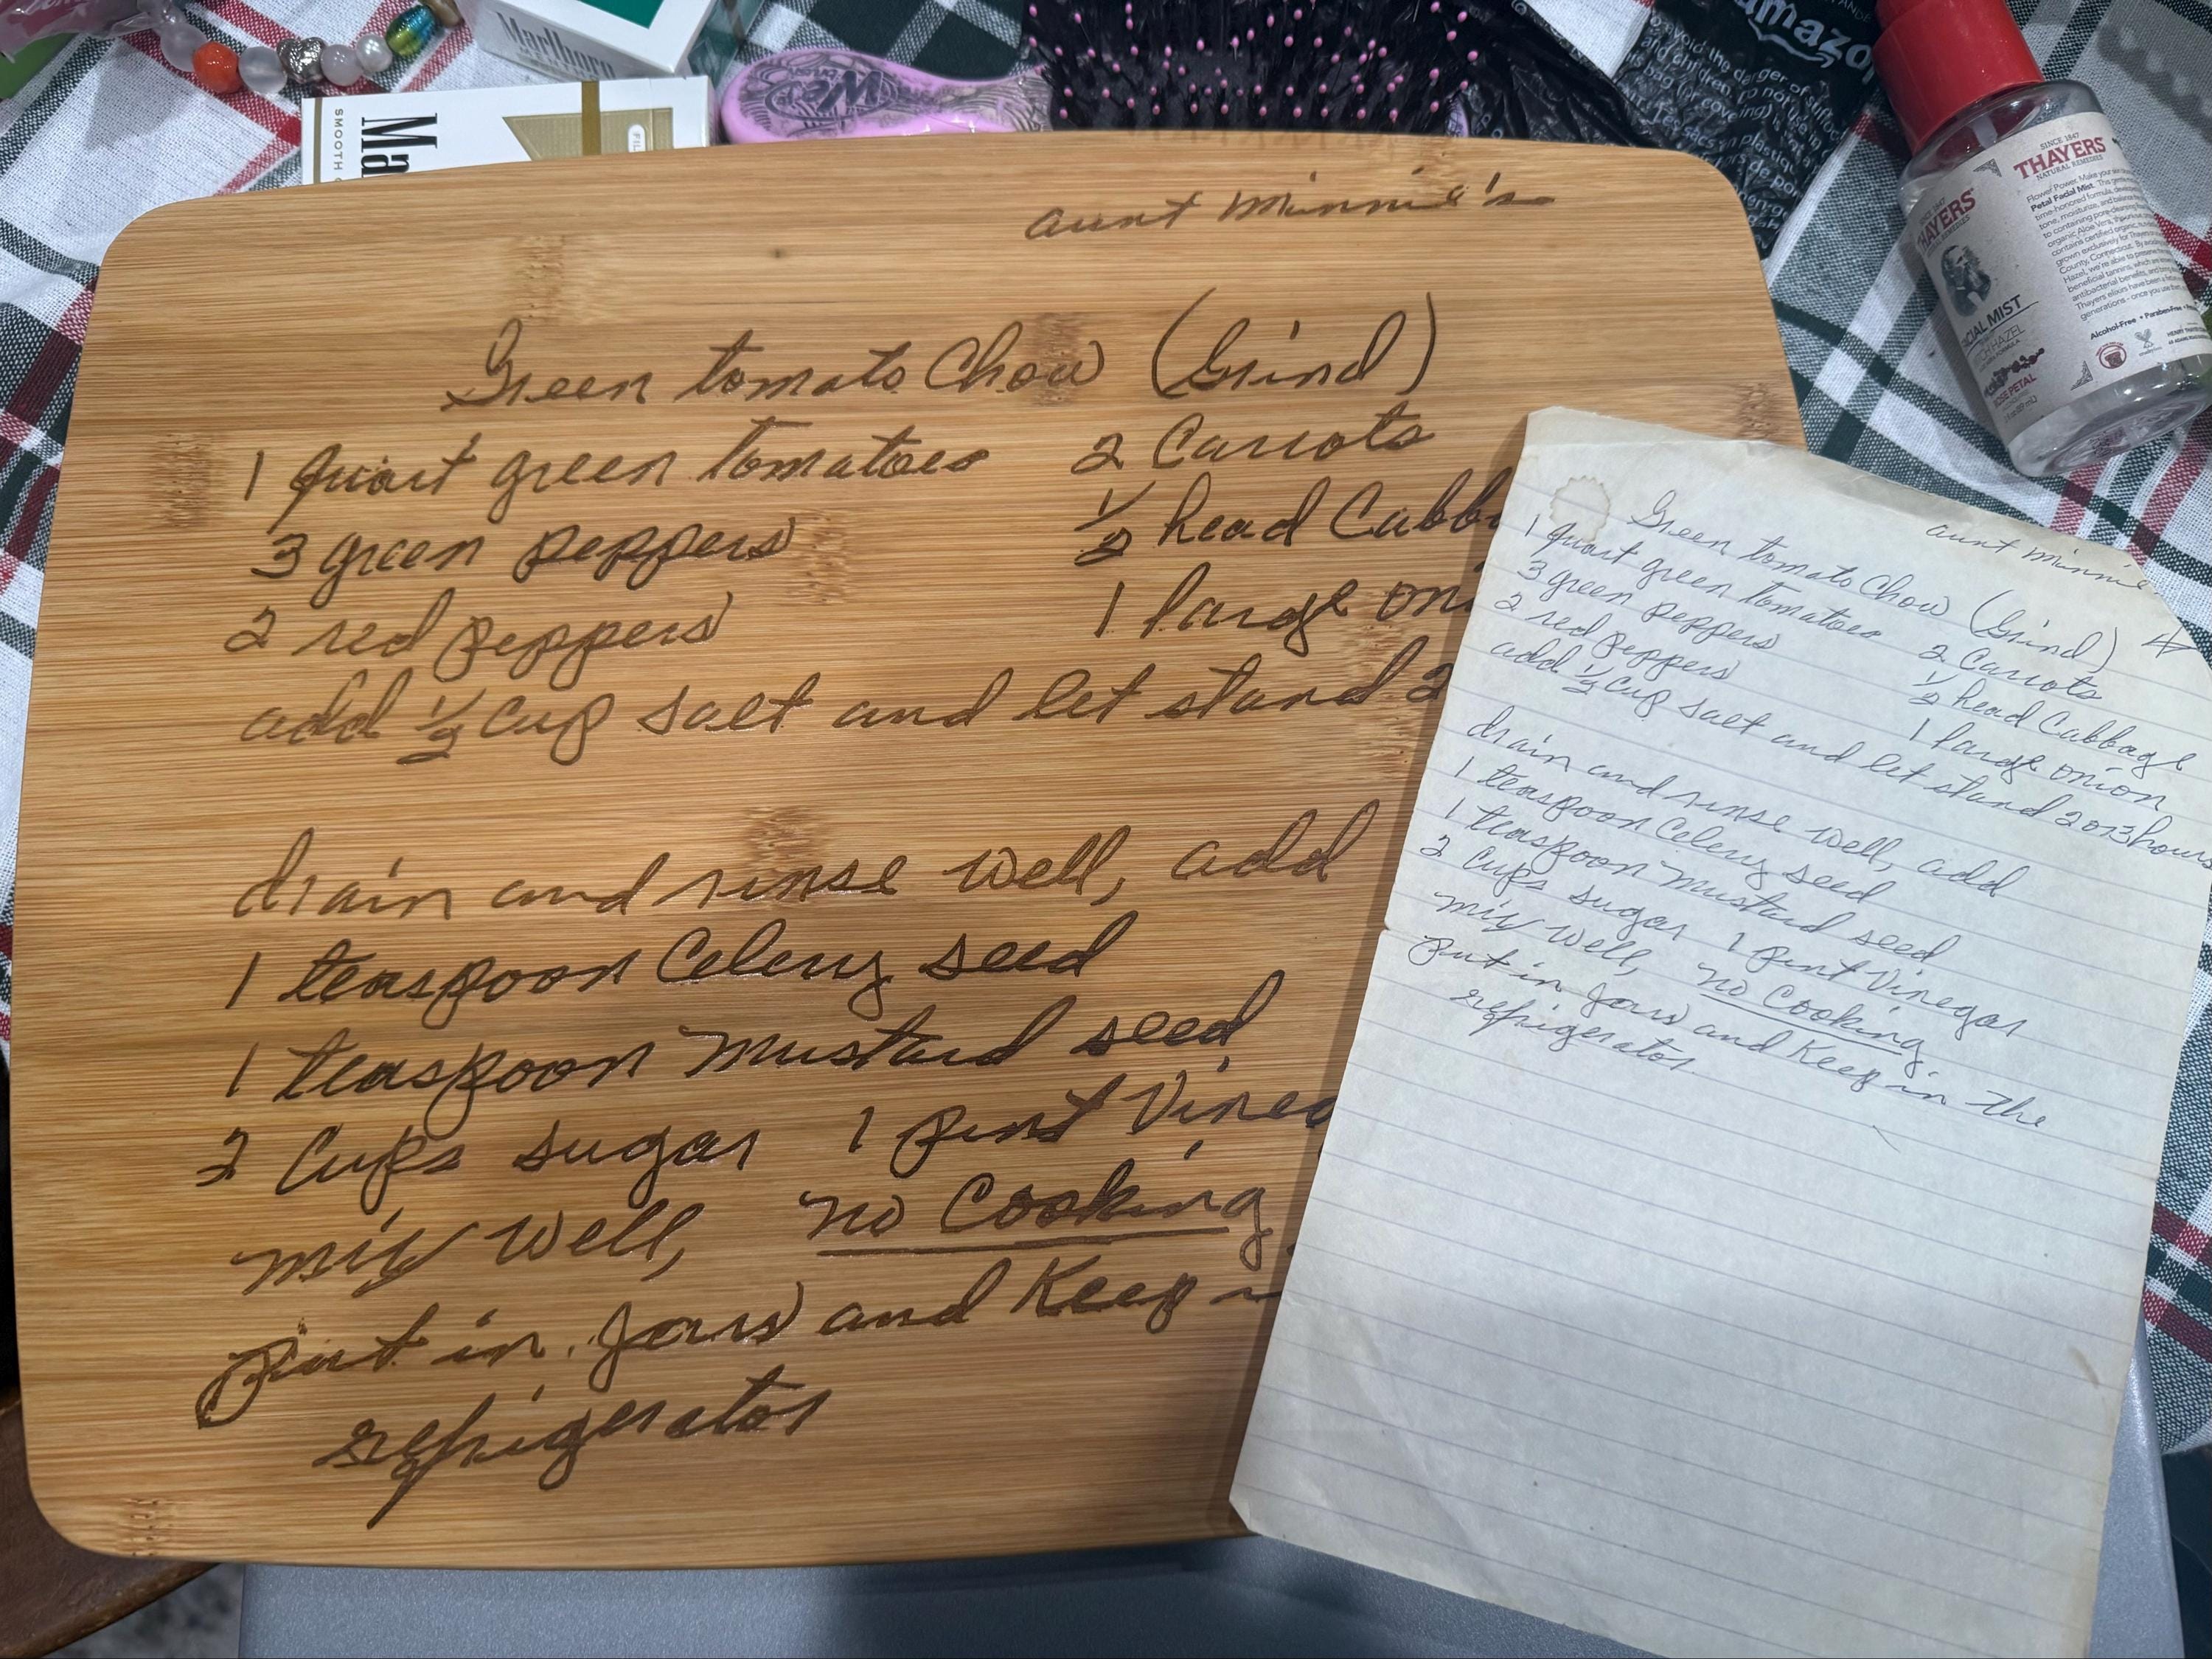 Marlboro
Mar
SMOOTH
FIL
We
amazo
avoid the danger of suffoc
and children. Do not use in
THAYERS
SINCE 1847
THAYERS
NATURAL REMEDIES
Petal Facial Mist
CIAL MIST
CH HAZEL
ROSE PETAL
Alcohol-Free • Paraben-Free
aunt minnie's
Green tomato Chow (Grind)
1 quart green tomatoes 2 Carrots
3 green peppers 1/2 head Cabb
2 red peppers 1 large oni
add 1/2 Cup salt and let stand 2
drain and rinse well, add
1 teaspoon Celery seed
1 teaspoon mustard seed
2 Cups sugar 1 pint Vineg
mix well, no Cooking
Put in Jars and Keep in
refrigerator
aunt minnie
Green tomato Chow (Grind)
1 quart green tomatoes 2 Carrots
3 green peppers 1/2 head Cabbage
2 red peppers 1 large onion
add 1/2 Cup salt and let stand 2 or 3 hours
drain and rinse well, add
1 teaspoon Celery seed
1 teaspoon mustard seed
2 Cups sugar 1 pint Vinegar
mix well, no Cooking.
Put in Jars and Keep in the
refrigerator.